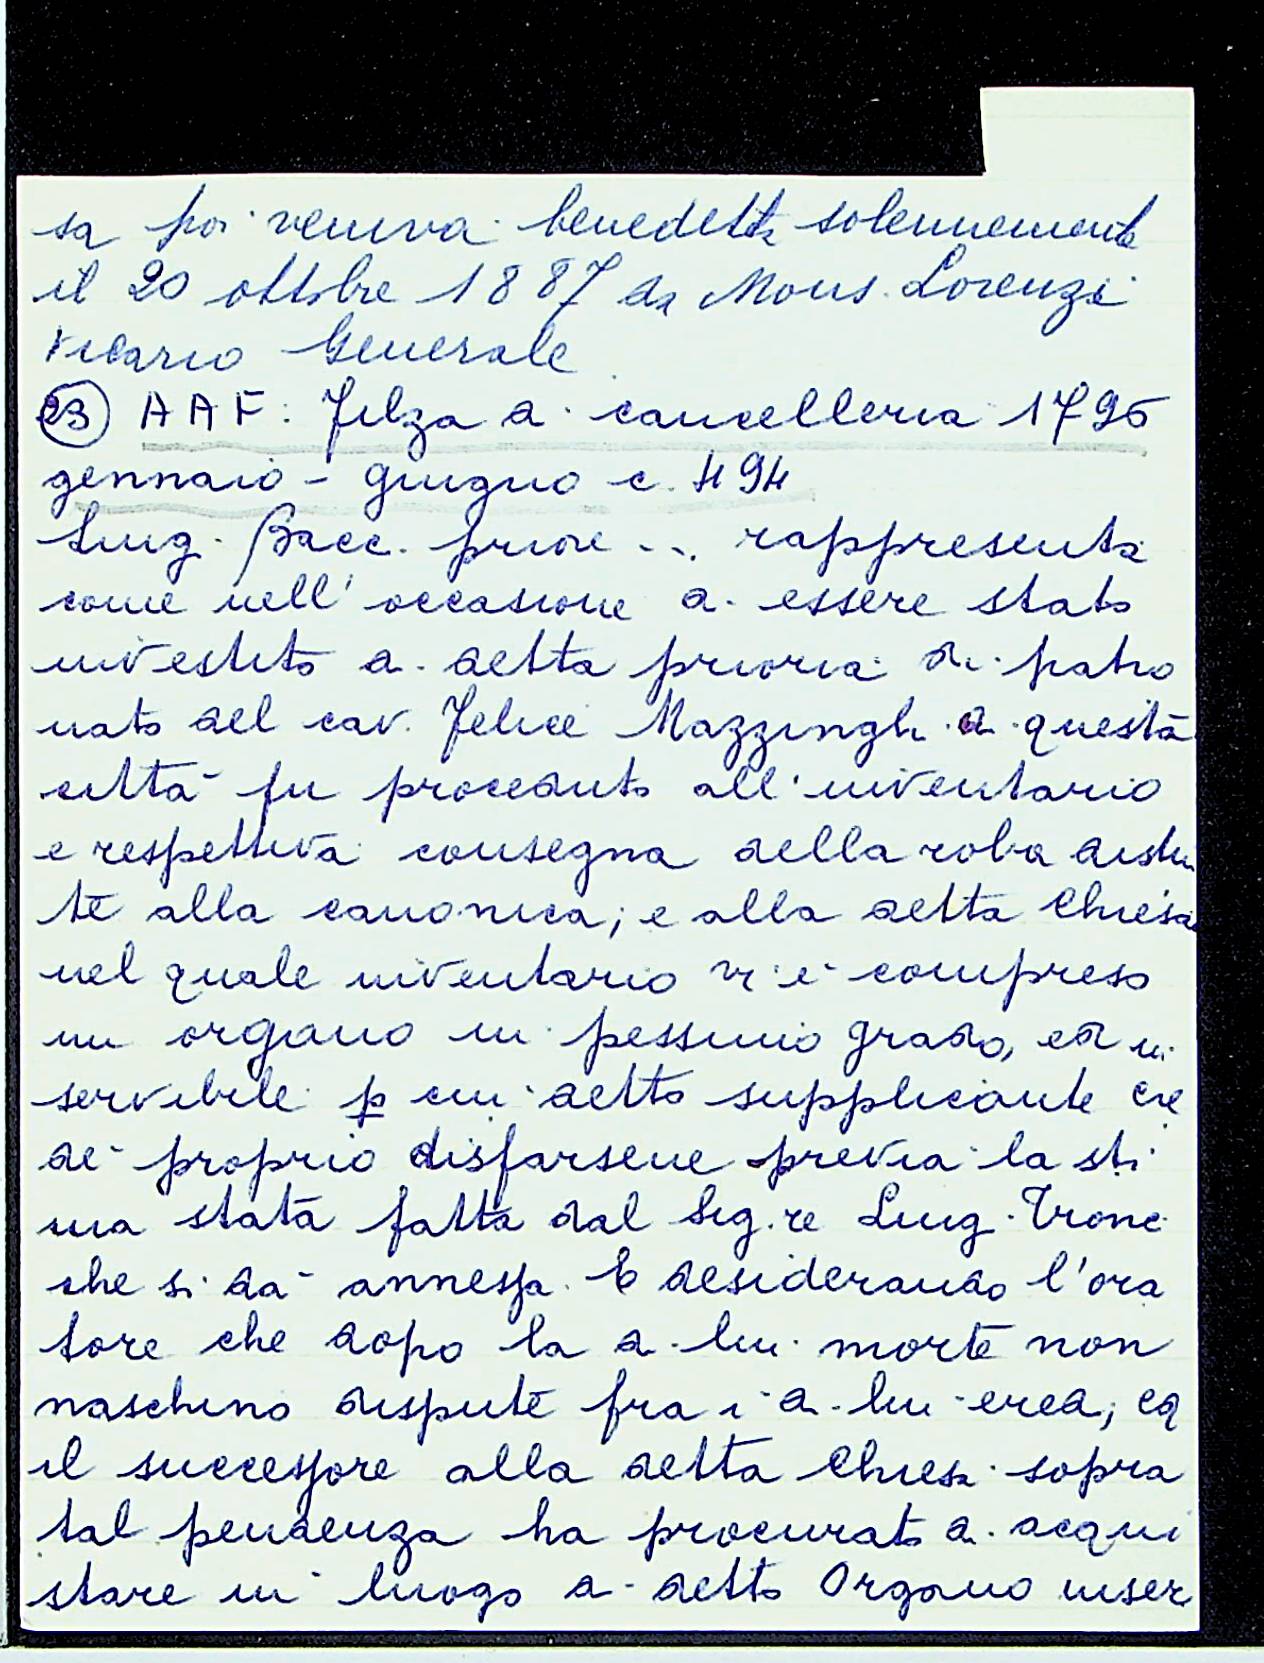 sa poi veniva benedetta solennemente
il 20 ottobre 1887 da Mons. Lorenzi
Vicario Generale
(23) AAF: Filza di cancelleria 1795
gennaio - giugno c. 494
Luig. Bacc. priore ... rappresenta
come nell' occasione di essere stato
investito di detta prioria di patro
nato del cav. Felice Mazzinghi di questa
città fu proceduto all' inventario
e respettiva consegna della roba
te alla canonica; e alla detta Chiesa
nel quale inventario vi è compreso
un organo in pessimo grado, ed in
servibile p cui detto supplicante cre
dé proprio disfarsene previa la sti
ma stata fatta dal Sig.re Luig. Tronci
che si dà annessa. E desiderando l'ora
tore che dopo la di lui morte non
naschino dispute fra i di lui eredi, ed
il successore alla detta Chiesa sopra
tal pendenza ha procurato di acqui
stare in luogo di detto Organo inser